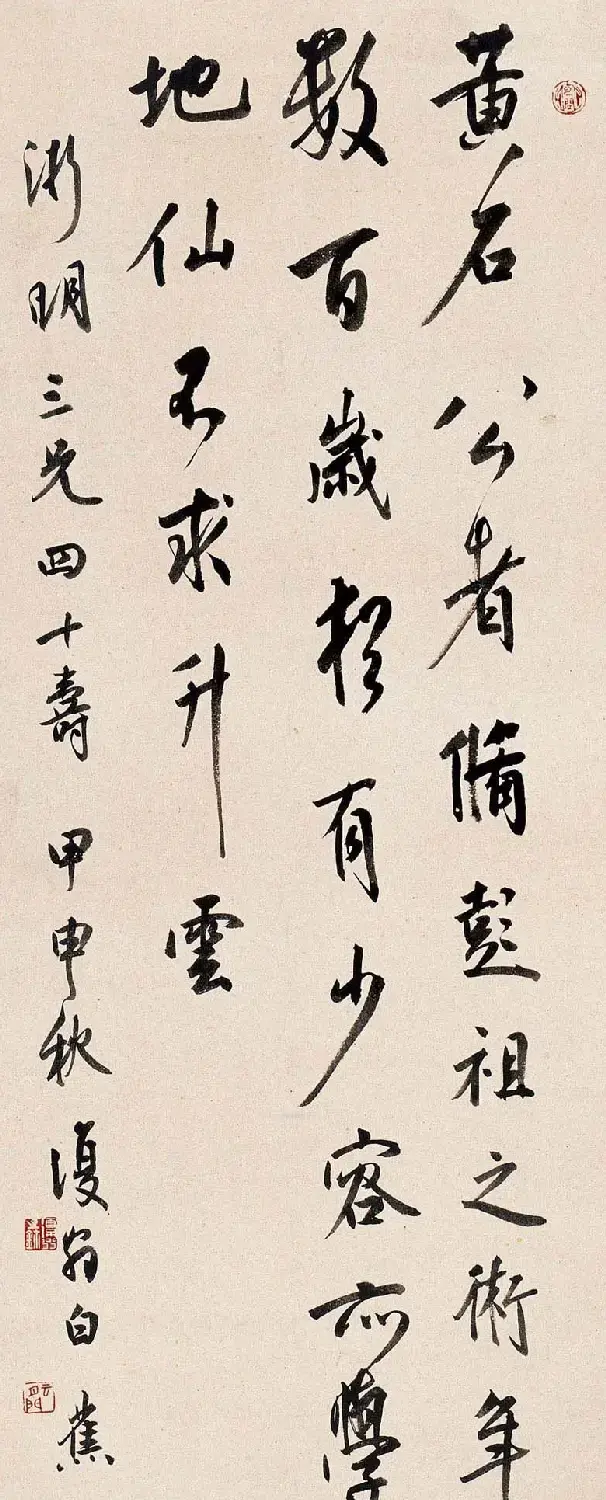 黃石公者脩彭祖之術年
數百歲猶有少容亦學
地仙不求升雲
明三兄四十壽 甲申秋 復翁白蕉